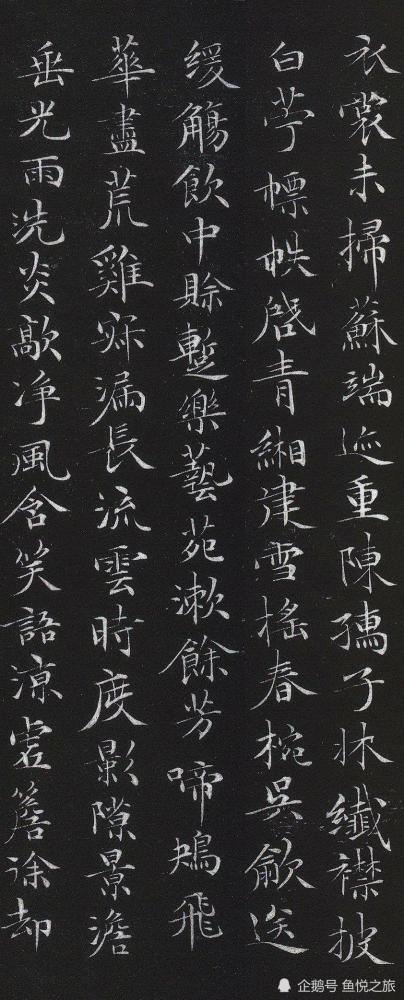 衣裳未掃蘇端迹重陳孺子牀纖襟披
白苧幖帙啓青緗建雪搖春椀吳歈送
緩觴飲中賒蹔樂藝苑漱餘芳啼鴂飛
華盡荒雞寐漏長流雲時度影隙景澹
垂光雨洗炎歊凈風含笑語涼虛簷徐却
企鹅号 鱼悦之旅